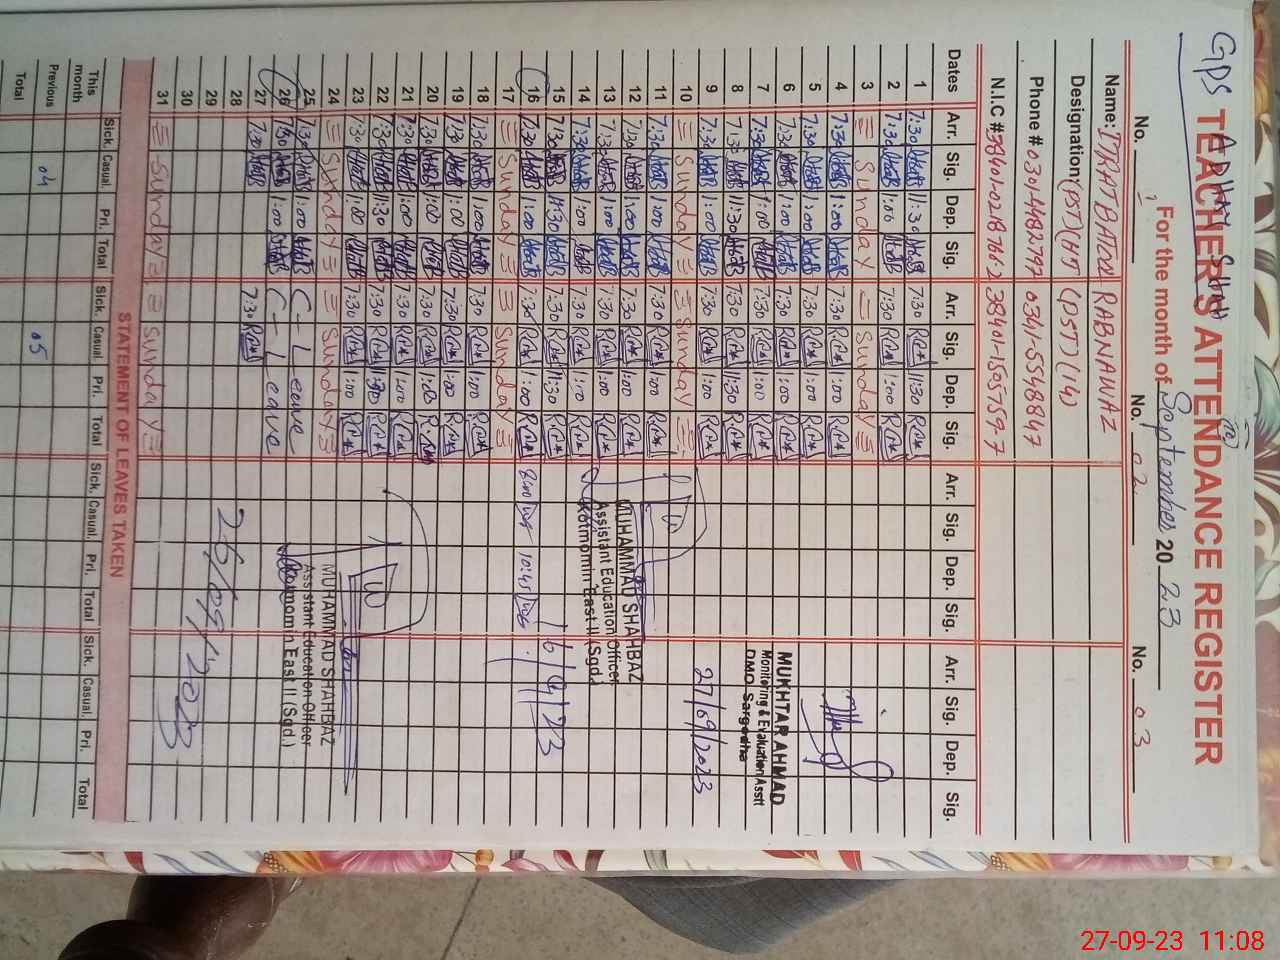 GPS
TEACHER'S ATTENDANCE REGISTER
For the month of September 20 23
No. 1 No. 02 No. 03
Name: RABNAWAZ
Designation (PST) (HT) (PST) (14)
Phone # 0341-5548847
N.I.C # 38401-1505759-7
Dates Arr. Sig. Dep. Sig. Arr. Sig. Dep. Sig. Arr. Sig. Dep. Sig. Arr. Sig. Dep. Sig.
1 7:30 11:30 7:30 11:30
2 7:30 1:00 7:30 1:00
3 Sunday Sunday
4 7:30 1:00 7:30 1:00
5 7:30 1:00 7:30 1:00
6 7:30 1:00 7:30 1:00
7 7:30 1:00 7:30 1:00
8 7:30 11:30 7:30 11:30
9 7:30 1:00 7:30 1:00
10 Sunday Sunday
11 7:30 1:00 7:30 1:00
12 7:30 1:00 7:30 1:00
13 7:30 1:00 7:30 1:00
14 7:30 1:00 7:30 1:00
15 7:30 11:30 7:30 11:30
16 7:30 1:00 7:30 1:00 8:00 10:45
17 Sunday Sunday
18 7:30 1:00 7:30 1:00
19 7:30 1:00 7:30 1:00
20 7:30 1:00 7:30 1:00
21 7:30 1:00 7:30 1:00
22 7:30 11:30 7:30 11:30
23 7:30 1:00 7:30 1:00
24 Sunday Sunday
25 7:30 1:00 C-Leave
26 7:30 1:00 C-Leave
27 7:30 7:30
28
29
30
31 Sunday Sunday
MUKHTAR AHMAD
Monitoring & Evaluation Asstt
DMO Sargodha
27/09/2023
MUHAMMAD SHAHBAZ
Assistant Education Officer
Kotmomin East II (Sgd.)
16/9/23
MUHAMMAD SHAHBAZ
Assistant Education Officer
Kotmomin East II (Sgd.)
26/09/2023
STATEMENT OF LEAVES TAKEN
Sick. Casual. Pri. Total Sick. Casual Pri. Total Sick. Casual. Pri. Total Sick. Casual. Pri. Total
This month
Previous 04 05
Total
27-09-23 11:08